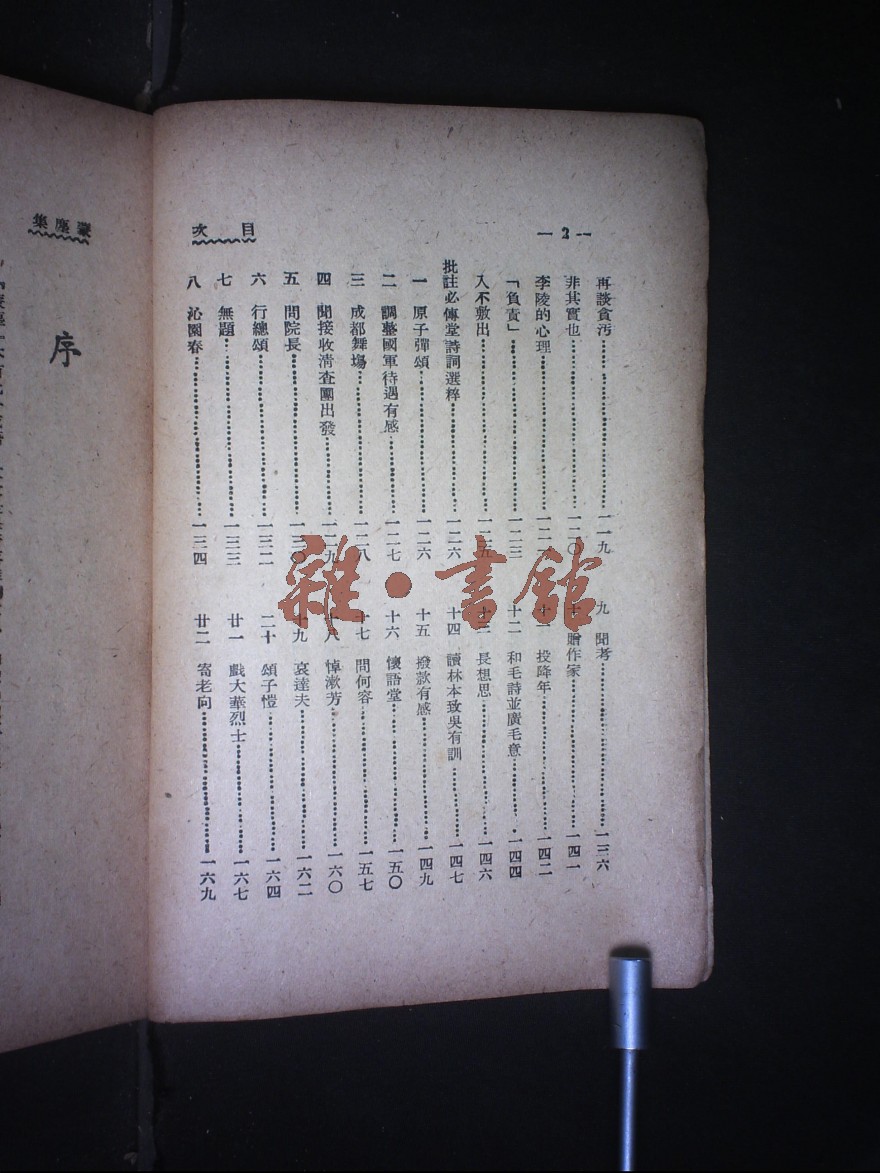 — 2 —
目次
再談貪污……一一九
非其實也……一二〇
李陵的心理……一二
「負責」……一二三
入不敷出……一二五
批註必傳堂詩詞選粹……一二六
一 原子彈頌……一二六
二 調整國軍待遇有感……一二七
三 成都舞場……一二八
四 聞接收清查團出發……一二九
五 問院長……一三〇
六 行總頌……一三二
七 無題……一三三
八 沁園春……一三四
九 聞考……一三六
十 贈作家……一四一
十一 投降年……一四二
十二 和毛詩並廣毛意……一四四
十三 長想思……一四六
十四 讀林本致吳有訓……一四七
十五 撥款有感……一四九
十六 懷語堂……一五〇
十七 問何容……一五七
十八 悼漱芳……一六〇
十九 哀達夫……一六二
二十 頌子愷……一六四
廿一 戲大華烈士……一六七
廿二 寄老向……一六九
蒙塵集
序
雜·書館